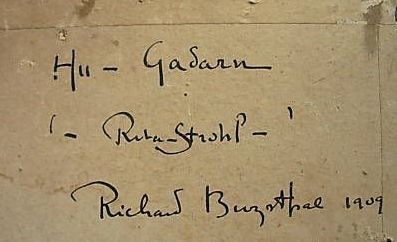 Hu - Gadarn
'- Rita-Strohl - '
Richard Burgsthal 1909